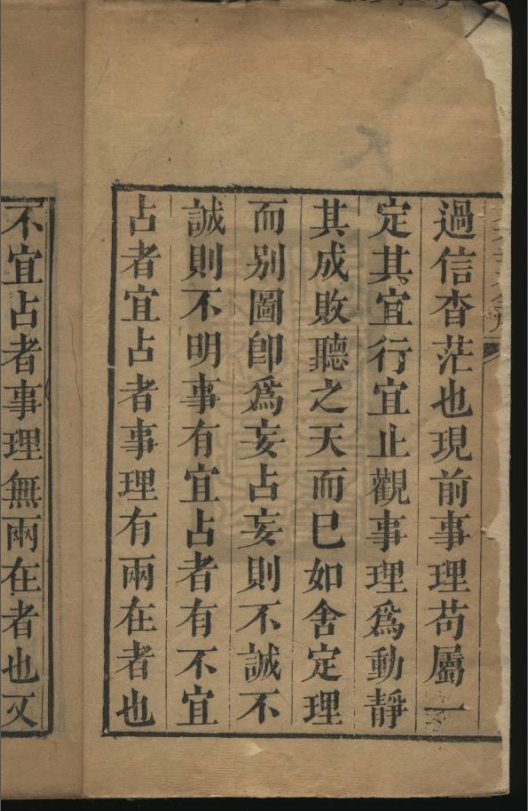 過信杳茫也現前事理苟屬一
定其宜行宜止觀事理爲動靜
其成敗聽之天而已如舍定理
而别圖卽爲妄占妄則不誠不
誠則不明事有宜占者有不宜
占者宜占者事理有兩在者也
不宜占者事理無兩在者也又